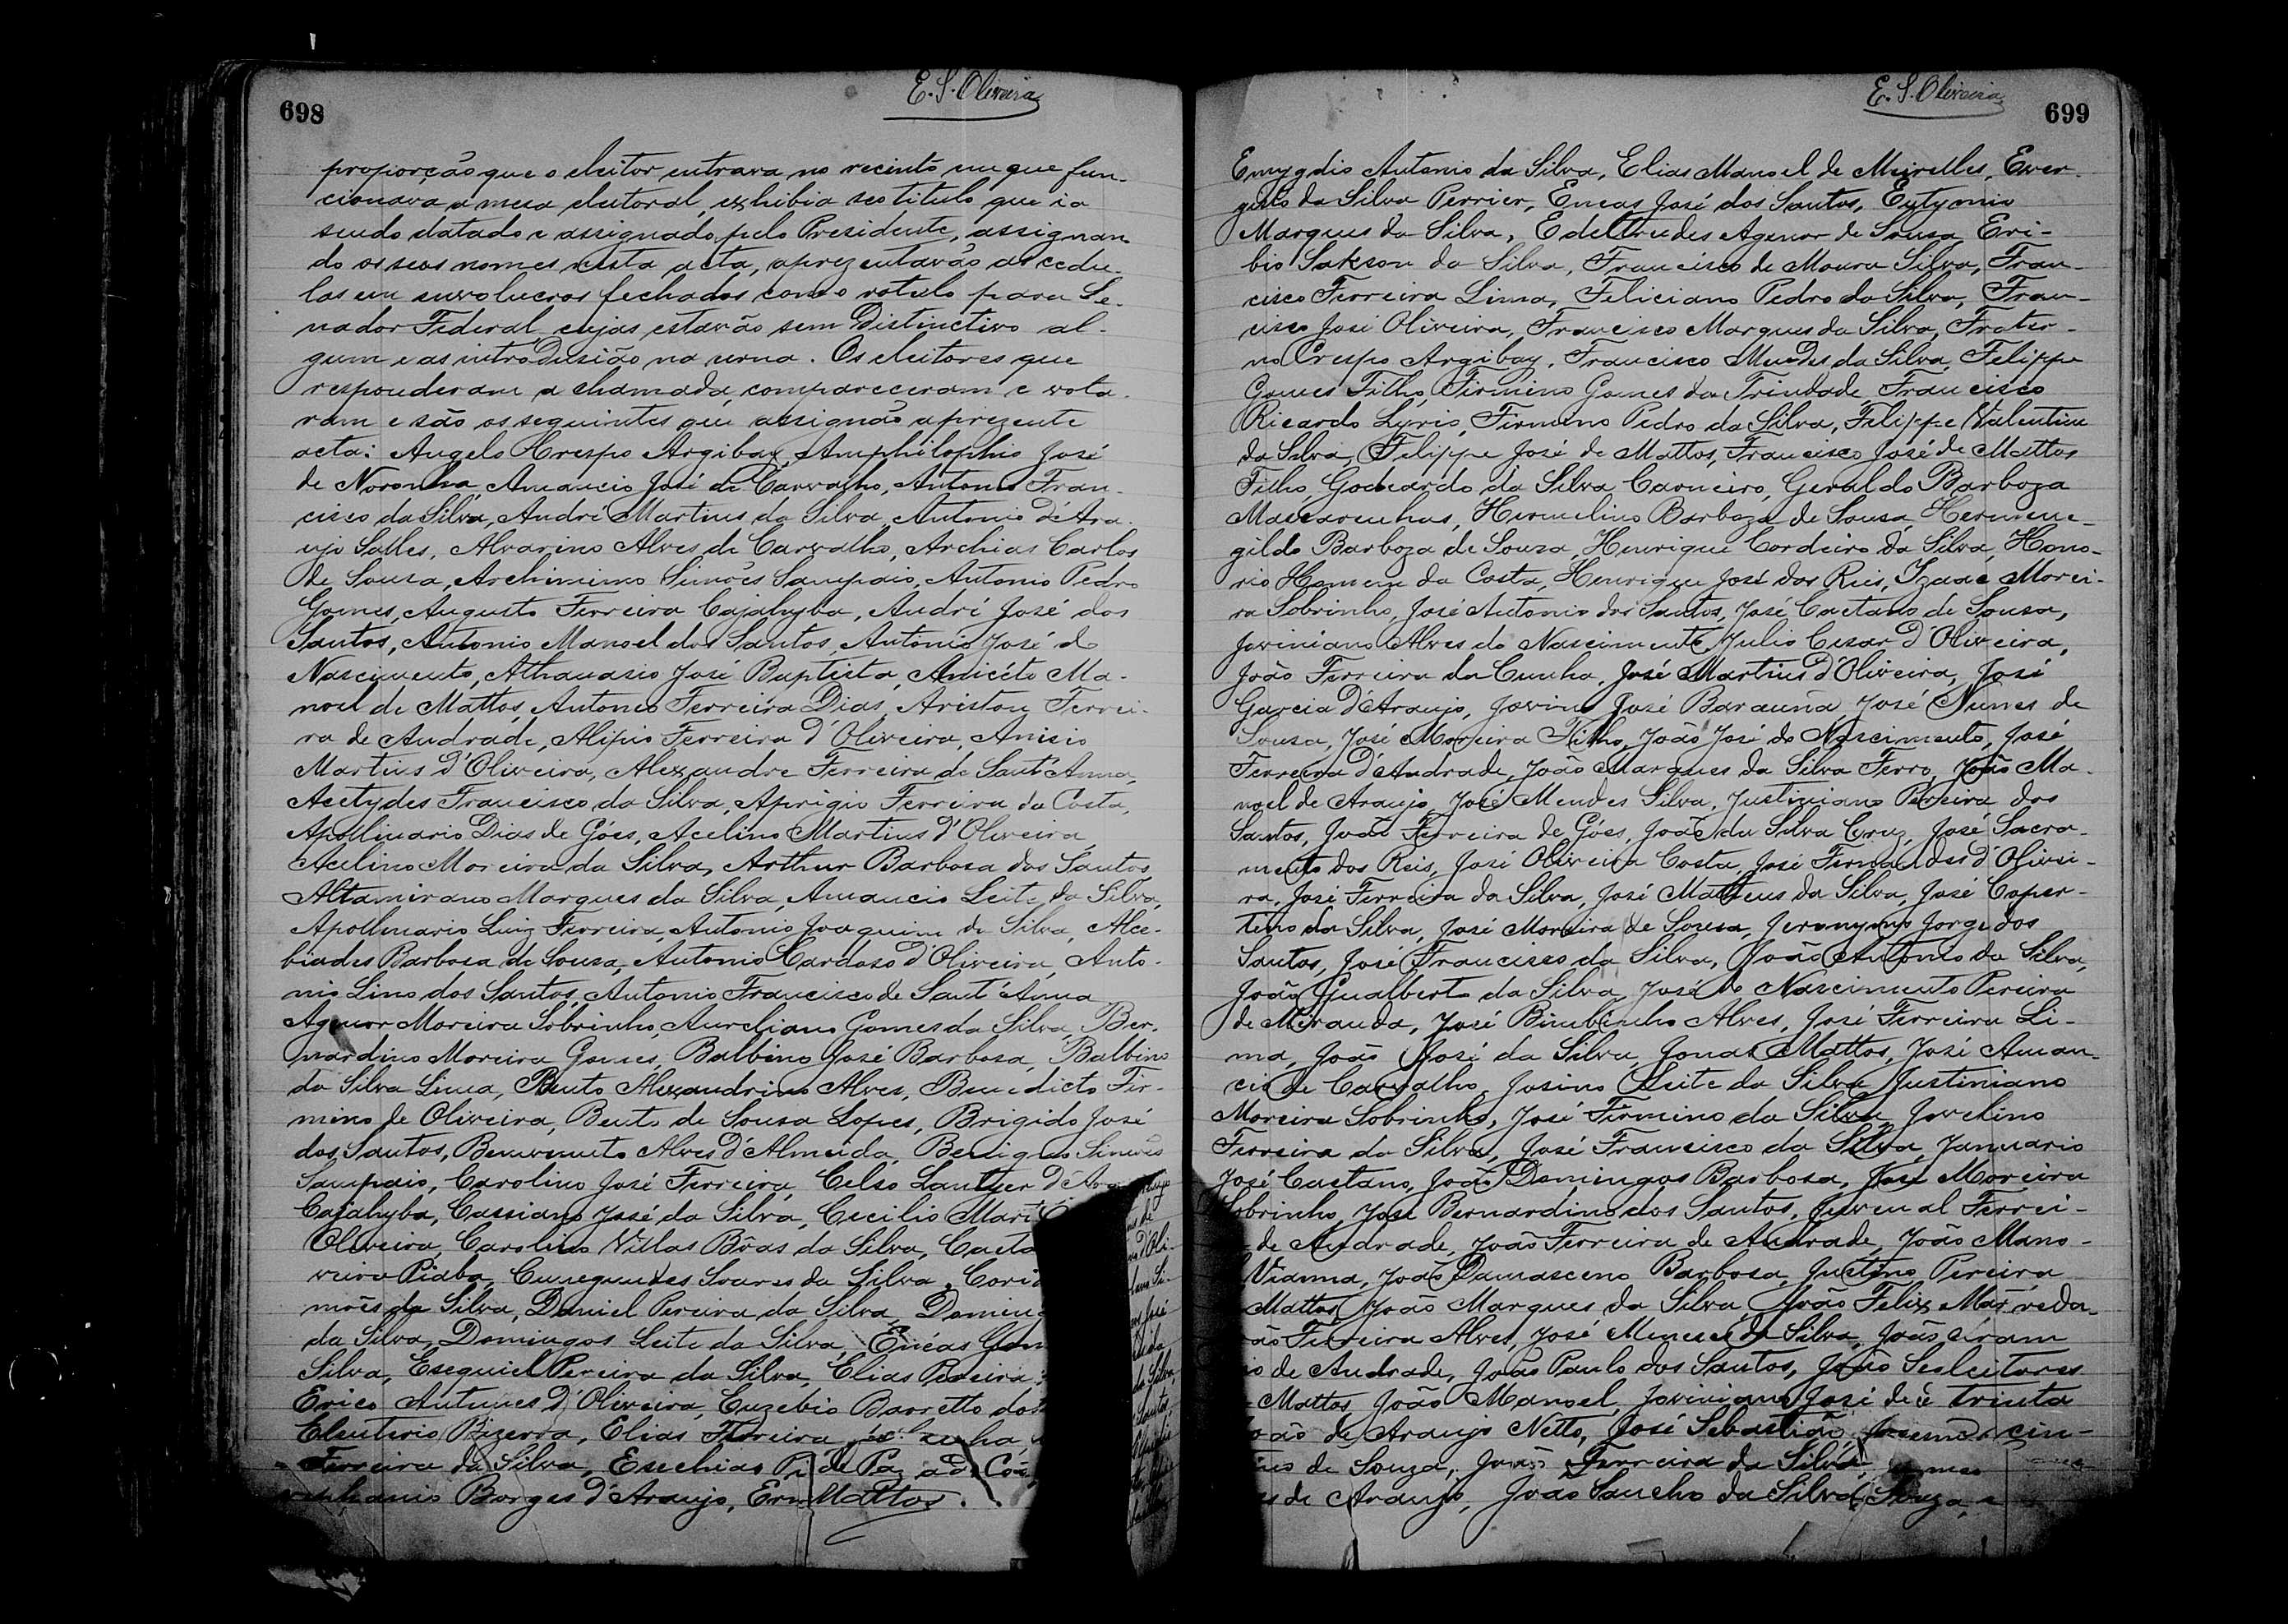 E. S. Oliveira
698
proporção que o eleitor entrava no recinto em que fun-
cionava a mesa eleitoral, exhibia seo titulo que ia
sendo datado e assignado pelo Presidente, assignan-
do os seos nomes nesta acta, aprezentavão as cedu-
las em envolucros fechados com o rotulo para Se-
nador Federal cujas estavão sem Distinctivo al-
gum e as introdusião na urna. Os eleitores que
responderam a chamada, compareceram e vota-
ram e são os seguintes que assignão a prezente
acta: Angelo Crespo Argibay, Amphilophio José
de Noronha, Amancio José de Carvalho, Antonio Fran-
cisco da Silva, André Martins da Silva, Antonio d'Ara-
ujo Salles, Alvarino Alves de Carvalho, Archias Carlos
de Sousa, Archimimo Simões Sampaio, Antonio Pedro
Gomes, Augusto Ferreira Cajahyba, André José dos
Santos, Antonio Manoel dos Santos, Antonio José do
Nascimento, Athanasio José Baptista, Anicéto Ma-
noel de Mattos, Antonio Ferreira Dias, Ariston Ferrei-
ra de Andrade, Alipio Ferreira d'Oliveira, Anisio
Martins d'Oliveira, Alexandre Ferreira de Sant'Anna,
Acetydes Francisco da Silva, Aprigio Ferreira da Costa,
Apollinario Dias de Góes, Acelino Martins d'Oliveira,
Acelino Moreira da Silva, Arthur Barbosa dos Santos,
Altamirano Marques da Silva, Amancio Leite da Silva,
Apollinario Luiz Ferreira, Antonio Joaquim da Silva, Alce-
biades Barbosa de Sousa, Antonio Cardoso d'Oliveira, Anto-
nio Lino dos Santos, Antonio Francisco de Sant'Anna
Agenor Moreira Sobrinho, Aureliano Gomes da Silva, Ber-
nardino Moreira Gomes, Balbino José Barbosa, Balbino
da Silva Lima, Bento Alexandrino Alves, Benedicto Fir-
mino de Oliveira, Bento de Sousa Lopes, Brigido José
dos Santos, Benvenuto Alves d'Almeida, Benigno Simões
Sampaio, Carolino José Ferreira, Celso
Cajahyba, Cassiano José da Silva, Cecilio
Oliveira, Carolino Villas Bôas da Silva,
Piaba, Cunegundes Soares da Silva,
mões da Silva, Daniel Pereira da Silva,
da Silva, Domingos Leite da Silva, Enéas
Silva, Esequiel Pereira da Silva, Elias Pereira
Erico Antunes d'Oliveira, Euzebio Barretto dos
Eleuterio Bizerra, Elias Ferreira
Ferreira da Silva, Esechias
Borges d'Araujo, Mattos.
E. S. Oliveira
699
Emygdio Antonio da Silva, Elias Manoel de Meirelles, Ever-
gisto da Silva Perrier, Eneas José dos Santos, Eutymio
Marques da Silva, Edeltrudes Agenor de Sousa, Eri-
bio Sakson da Silva, Francisco de Moura Silva, Fran-
cisco Ferreira Lima, Feliciano Pedro da Silva, Fran-
cisco José Oliveira, Francisco Marques da Silva, Frater-
no Crespo Argibay, Francisco Mendes da Silva, Felippe
Gomes Filho, Firmino Gomes da Trindade, Francisco
Ricardo Lyrio, Firmino Pedro da Silva, Felippe Valentim
da Silva, Felippe José de Mattos, Francisco José de Mattos
Filho, Godeardo da Silva Carneiro, Geraldo Barboza
Mascarenhas, Hermelino Barboza de Sousa, Hermene-
gildo Barboza de Souza, Henrique Cordeiro da Silva, Hono-
rio Homem da Costa, Henrique José dos Reis, Izaac Morei-
ra Sobrinho, José Antonio dos Santos, José Caetano de Sousa,
Joviniano Alves do Nascimento, Julio Cesar d'Oliveira,
João Ferreira da Cunha, José Martins d'Oliveira, José
Garcia d'Araujo, Jovino José Barauna, José Nunes de
Sousa, José Moreira Filho, João José do Nascimento, José
Ferreira d'Andrade, João Marques da Silva Ferro, João Ma-
noel de Araujo, José Mendes Silva, Justiniano Pereira dos
Santos, João Ferreira de Góes, João da Silva Cruz, José Sacra-
mento dos Reis, José Oliveira Costa, José Fernandes d'Olivei-
ra, José Ferreira da Silva, José Matheus da Silva, José Coper-
tino da Silva, José Moreira de Sousa, Jeronymo Jorge dos
Santos, José Francisco da Silva, João Antonio da Silva,
João Gualberto da Silva, José do Nascimento Pereira
de Miranda, José Bimbinho Alves, José Ferreira Li-
ma, João José da Silva, Jonas Mattos, José Aman-
cio de Carvalho, Josino Leite da Silva, Justiniano
Moreira Sobrinho, José Firmino da Silva, Jovelino
Ferreira da Silva, José Francisco da Silva, Januario
José Caetano, João Domingos Barbosa, José Moreira
Sobrinho, José Bernardino dos Santos, Juvenal Ferrei-
de Andrade, João Ferreira de Andrade, João Mano-
Vianna, João Damasceno Barbosa, Justino Pereira
Mattos, João Marques da Silva, João Felix
Ferreira Alves, José Meneses da Silva, João
de Andrade, João Paulo dos Santos, João
Mattos, João Manoel, Joviniano José de trinta
de Araujo Netto, José Sebastião, cin-
de Souza, João Ferreira da Silva,
de Araujo, João Sancho da Silva, Souza,